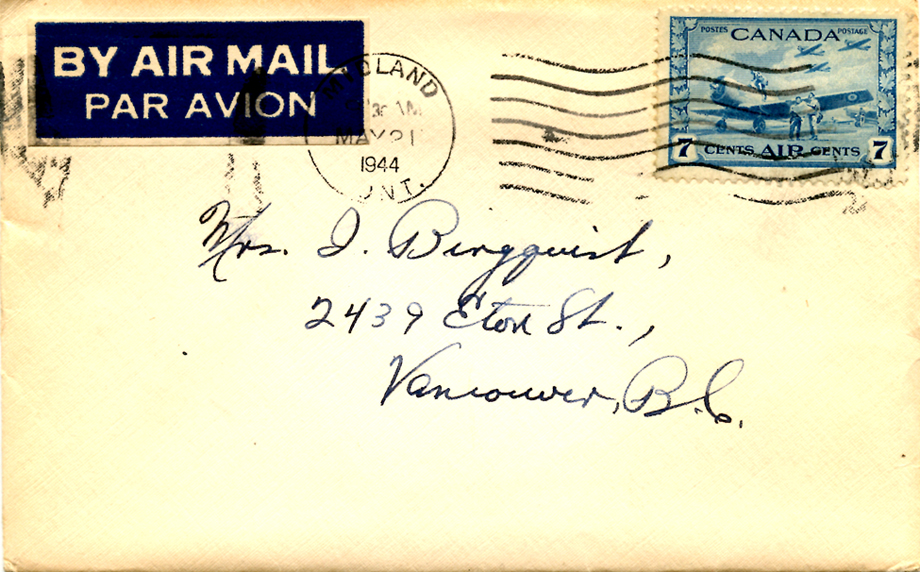 BY AIR MAIL
PAR AVION
MIDLAND
AM
MAY 21
1944
ONT.
POSTES CANADA POSTAGE
7 CENTS AIR CENTS 7
Mrs. I. Bergquist,
2439 Eton St.,
Vancouver, B.C.